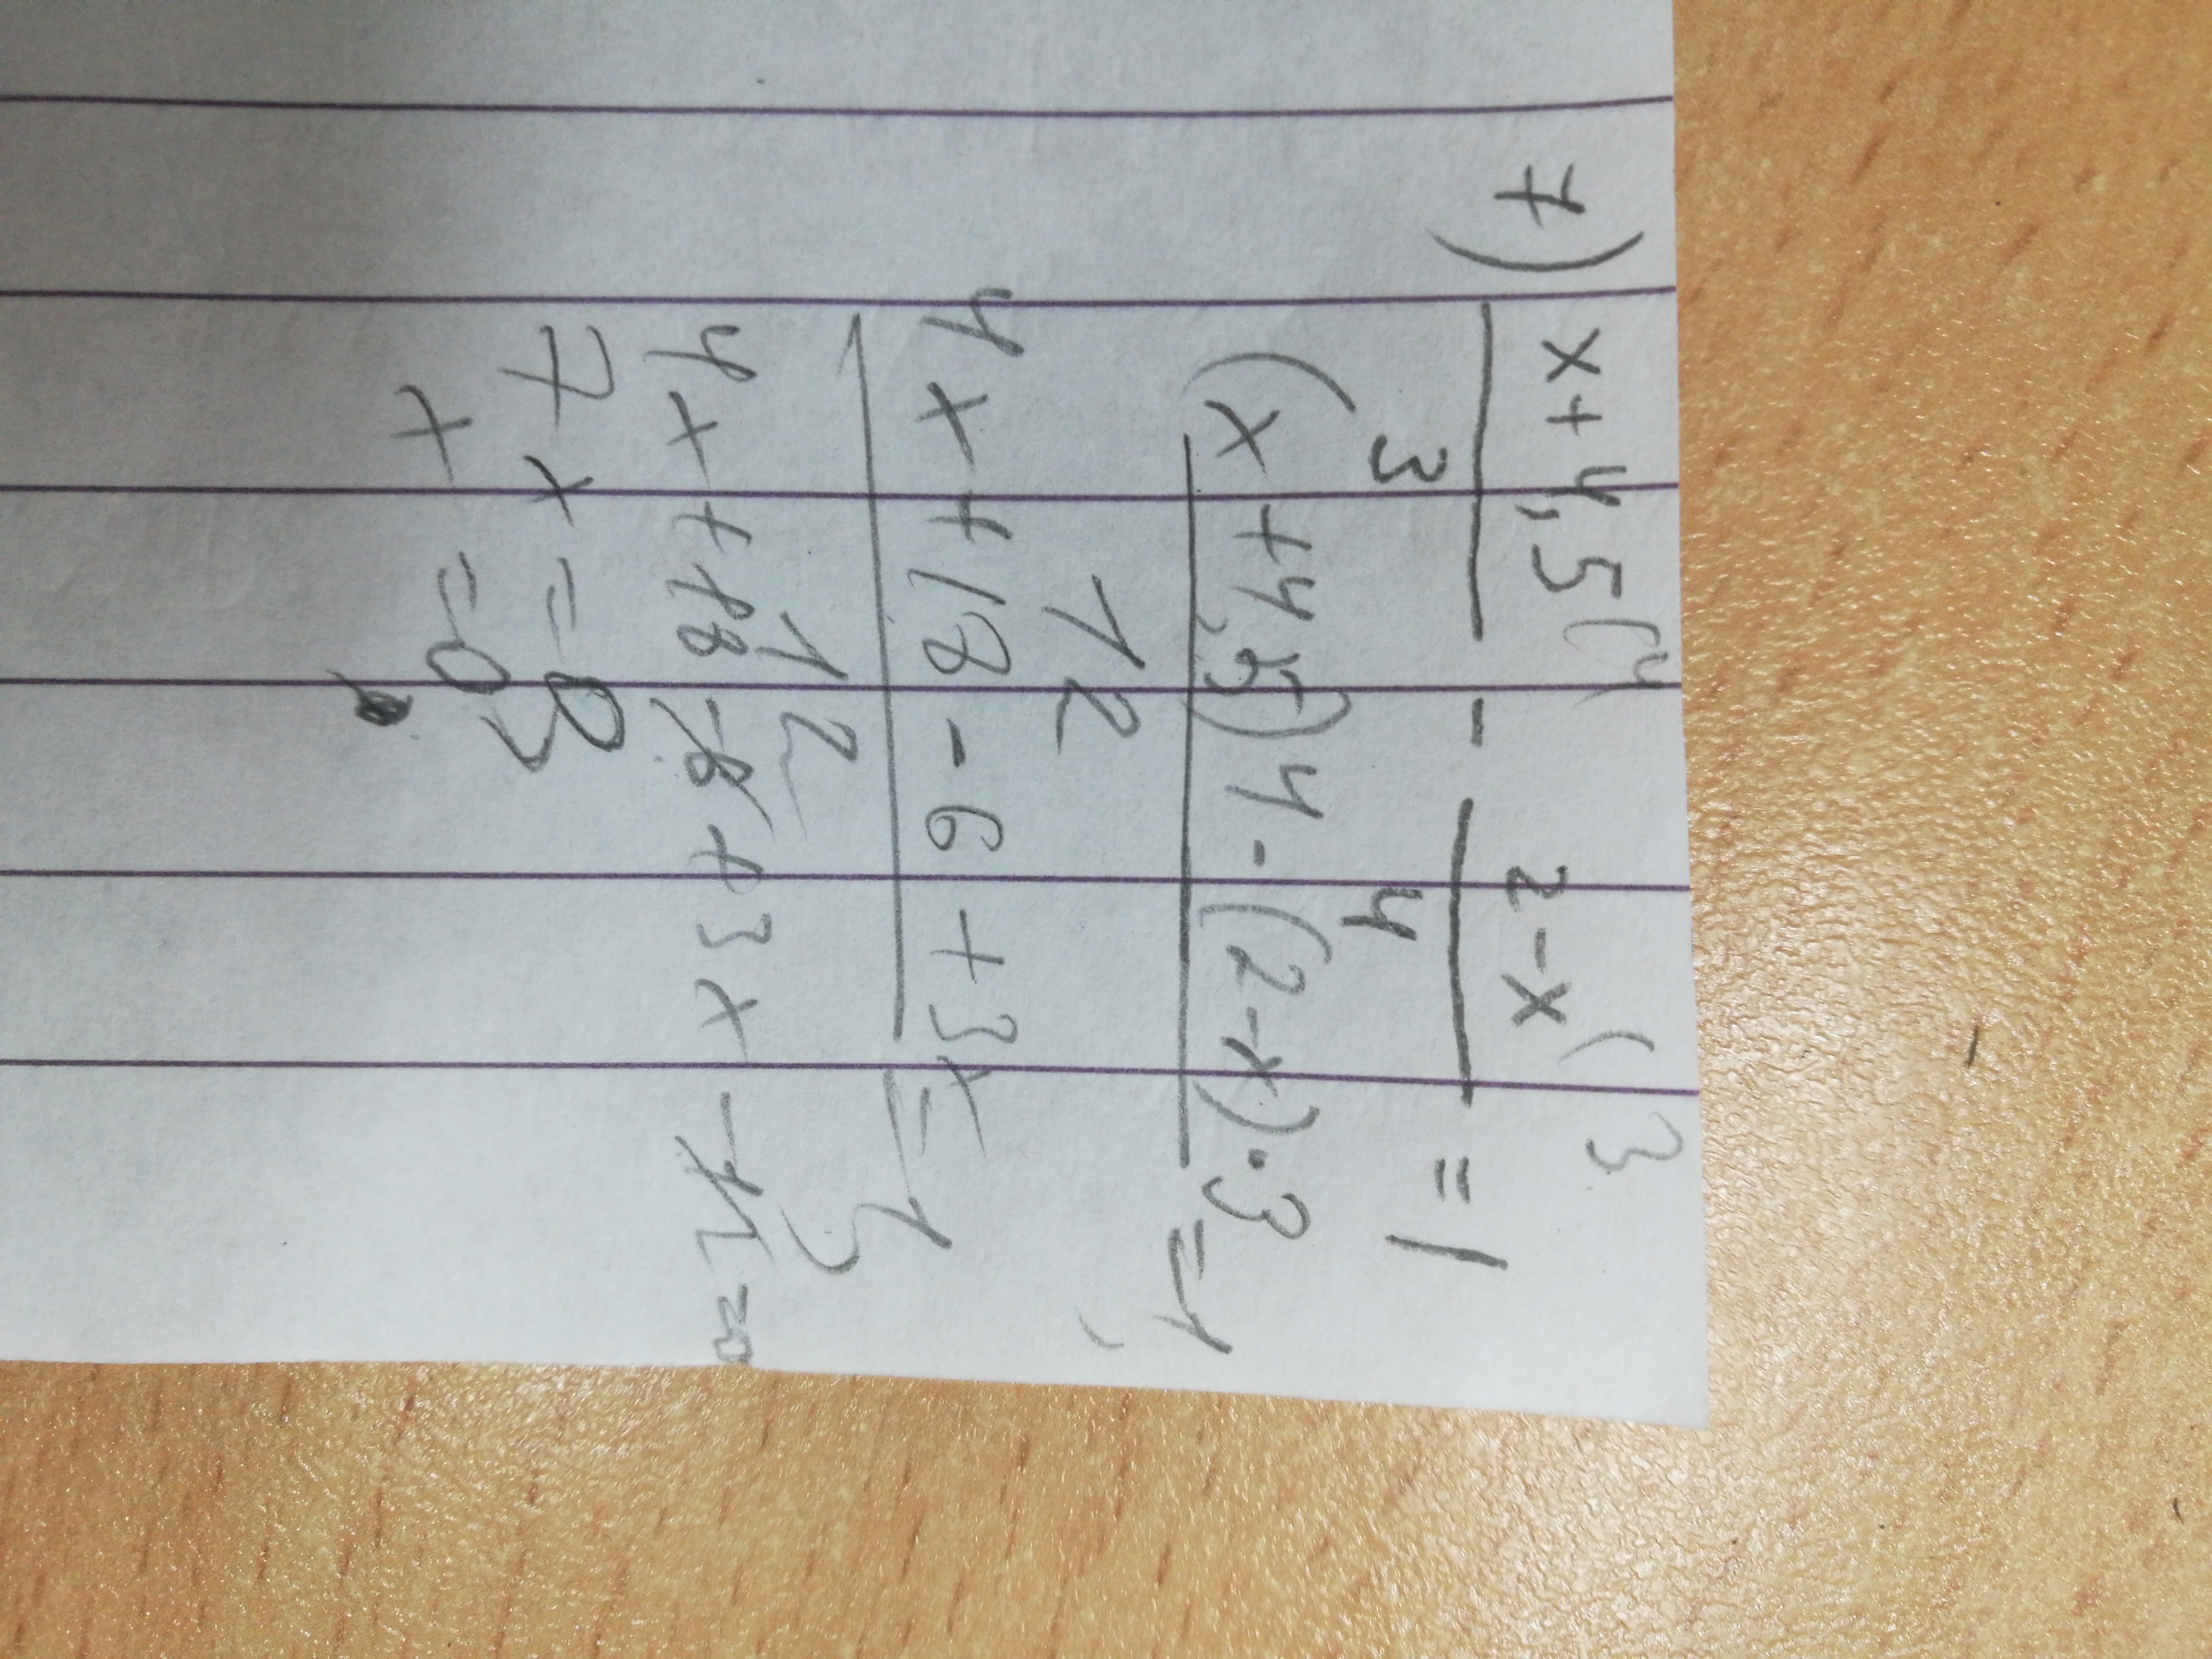 7) x+4,5(4 - 2-x(3 = 1
3 4
(x+4,5)4-(2-x)·3=1
12
4x+18-6+3x=1
12
4x+18-6+3x-12=0
7x=0
x=0